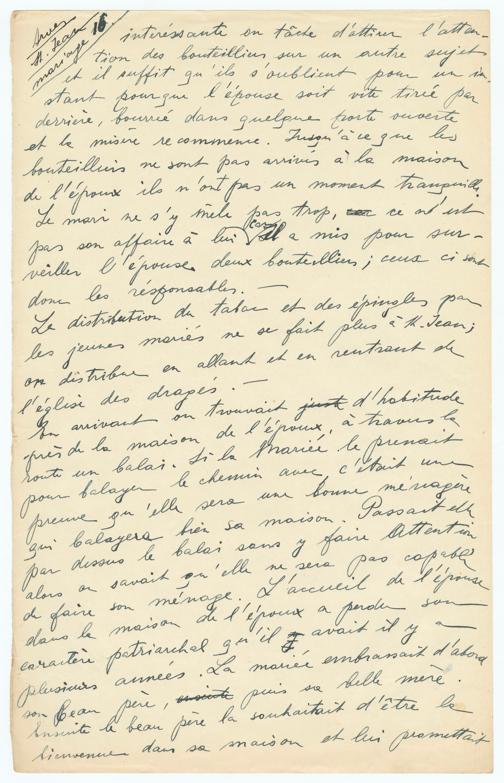 Arves
St. Jean
mariage
16
intéressante on tâche d'attirer l'atten-
tion des bouteilliers sur un autre sujet
et il suffit qu'ils s'oublient pour un in-
stant pour que l'épouse soit vite tirée par
derrière, bourrée dans quelque porte ouverte
et la misère recommence. Jusqu'à ce que les
bouteilliers ne sont pas arrivés à la maison
de l'époux ils n'ont pas un moment tranquille.
Le mari ne s'y mêle pas trop, ce n'est
pas son affaire à lui car il a mis pour sur-
veiller l'épouse deux bouteilliers; ceux ci sont
donc les résponsables. —
La distribution du tabac et des épingles par
les jeunes mariés ne se fait plus à St. Jean;
on distribue en allant et en rentrant de
l'église des dragés. —
En arrivant on trouvait juste d'habitude
près de la maison de l'époux, à travers la
route un balai. Si la mariée le prenait
pour balayer le chemin avec c'était une
preuve qu'elle sera une bonne ménagère
qui balayera bien sa maison. Passait elle
par dessus le balai sans y faire attention
alors on savait qu'elle ne sera pas capable
de faire son ménage. L'accueil de l'épouse
dans la maison de l'époux a perdu son
caractère patriarchal qu'il y avait il y a
plusieurs années. La mariée embrassait d'abord
son beau père, ensuite puis sa belle mère.
Ensuite le beau père la souhaitait d'être la
bienvenue dans sa maison et lui promettait